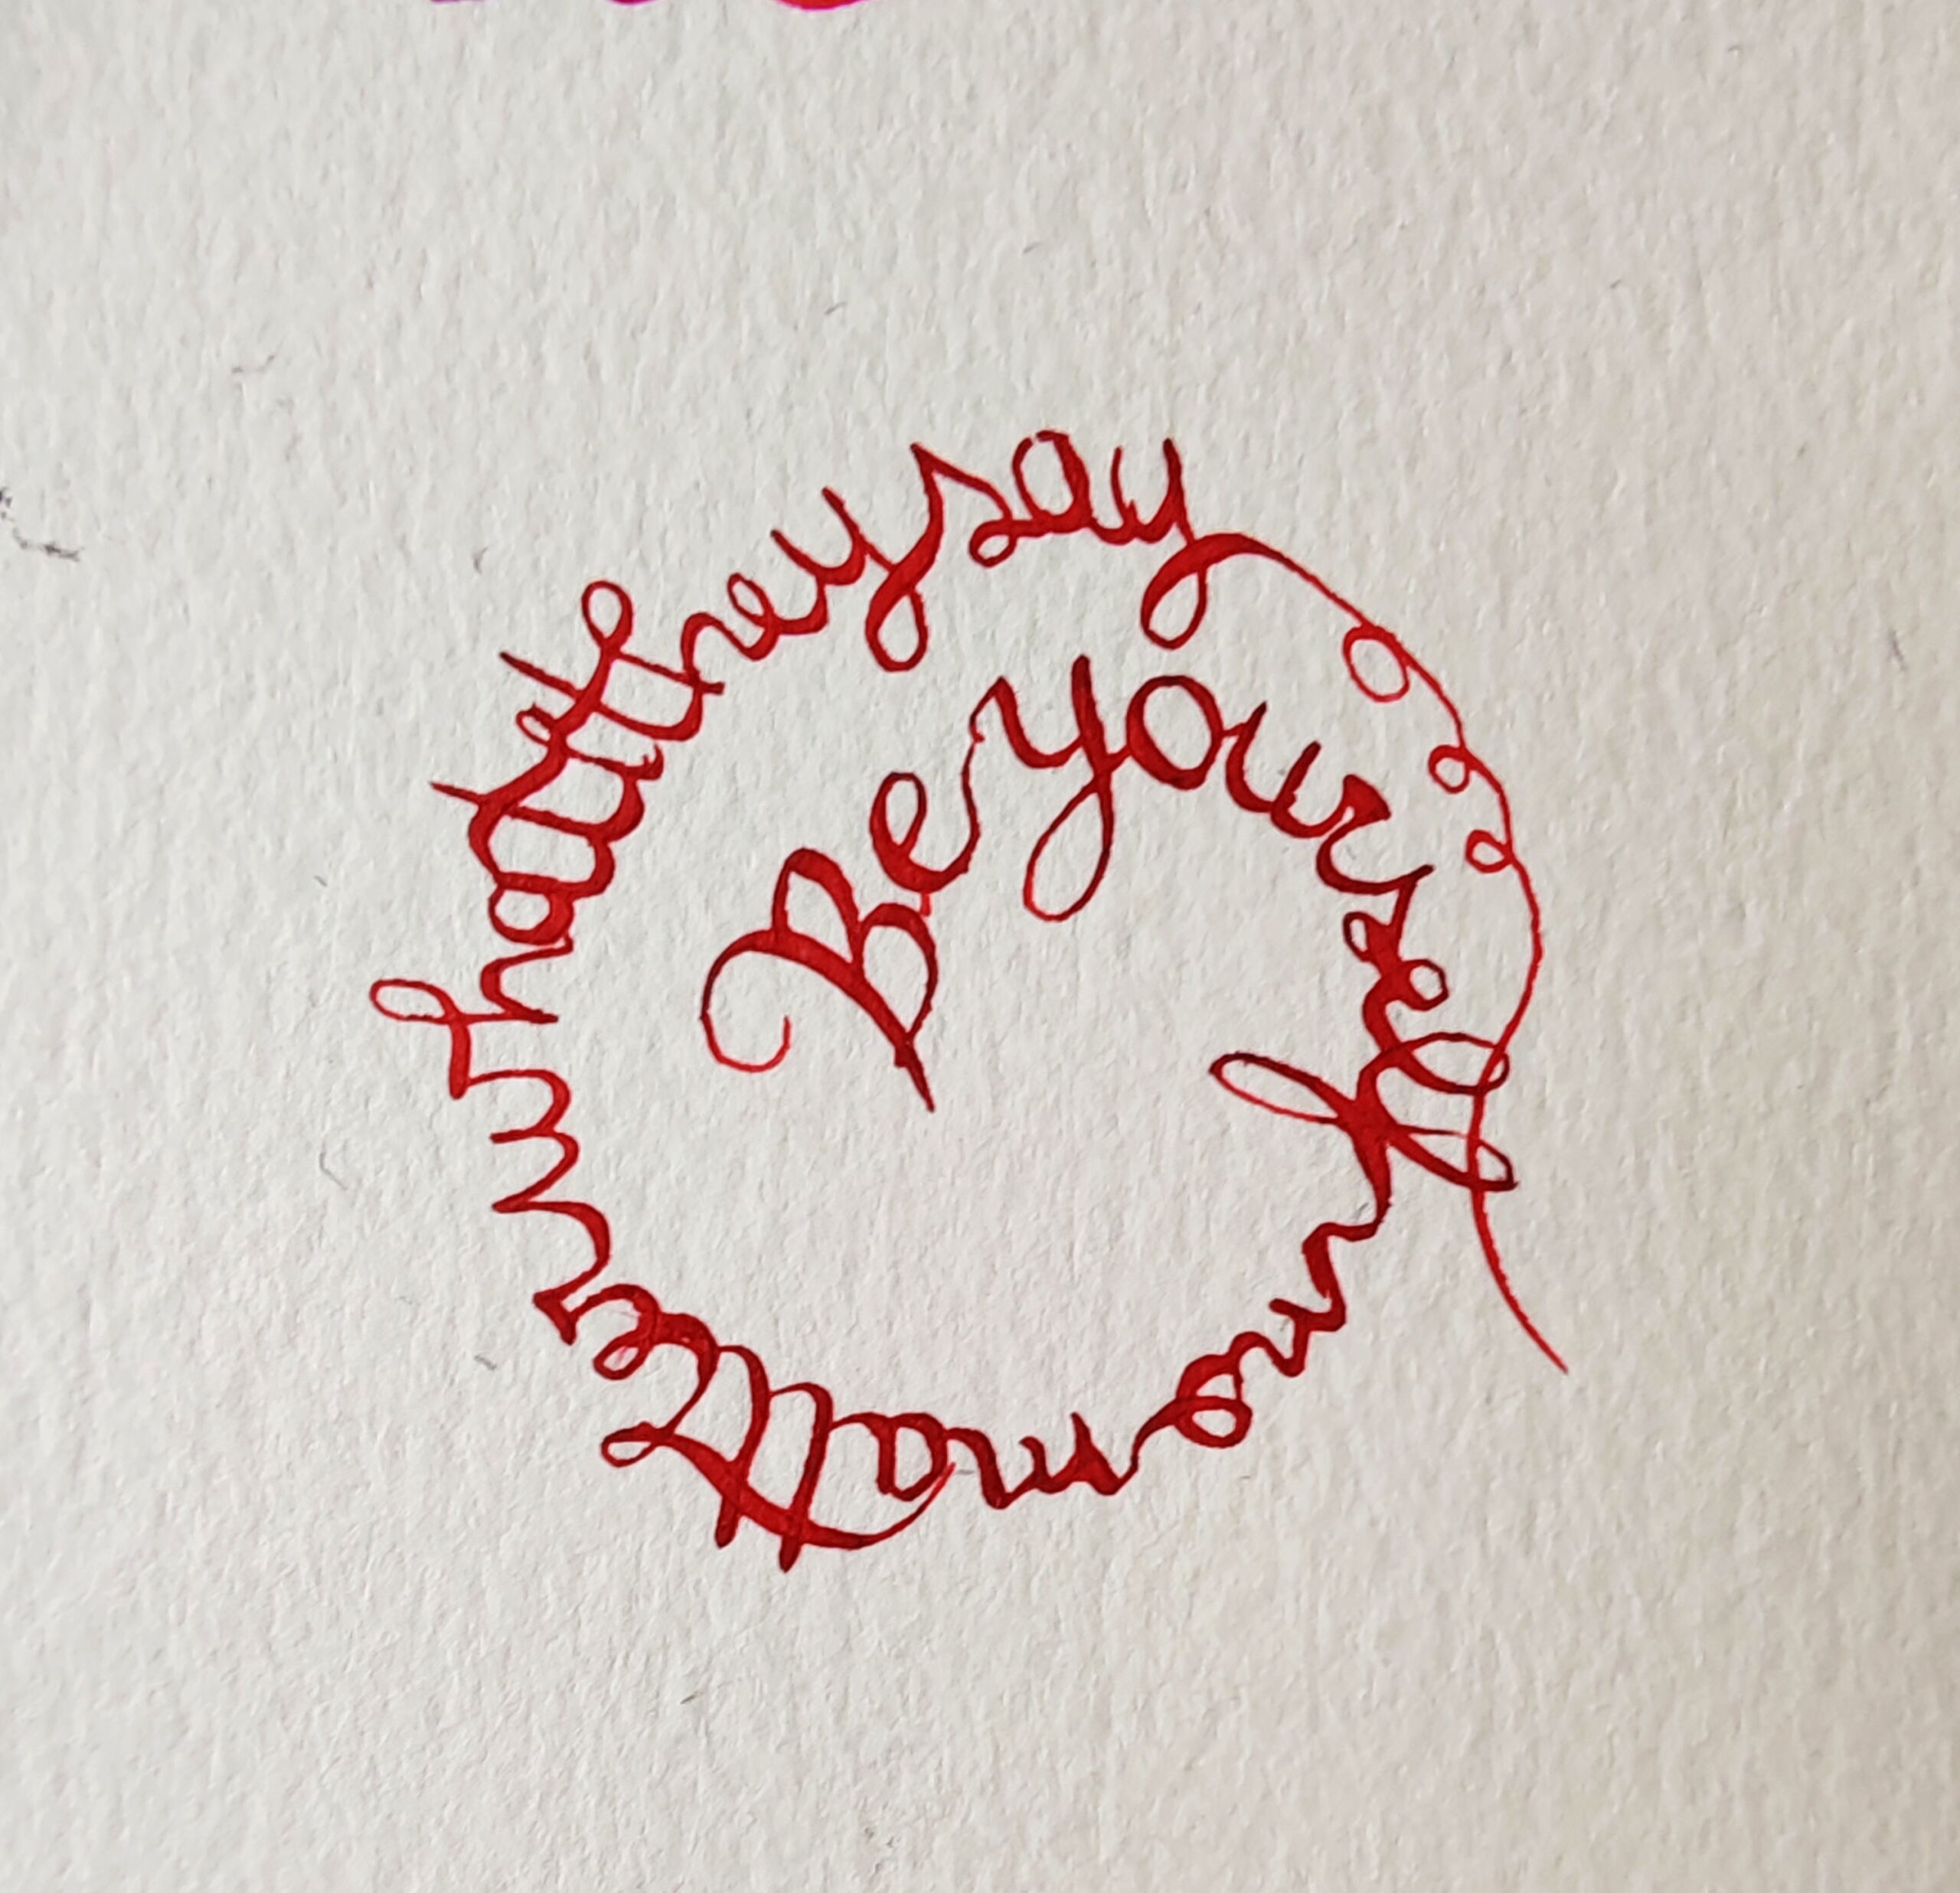 Be yourself no matter what they say